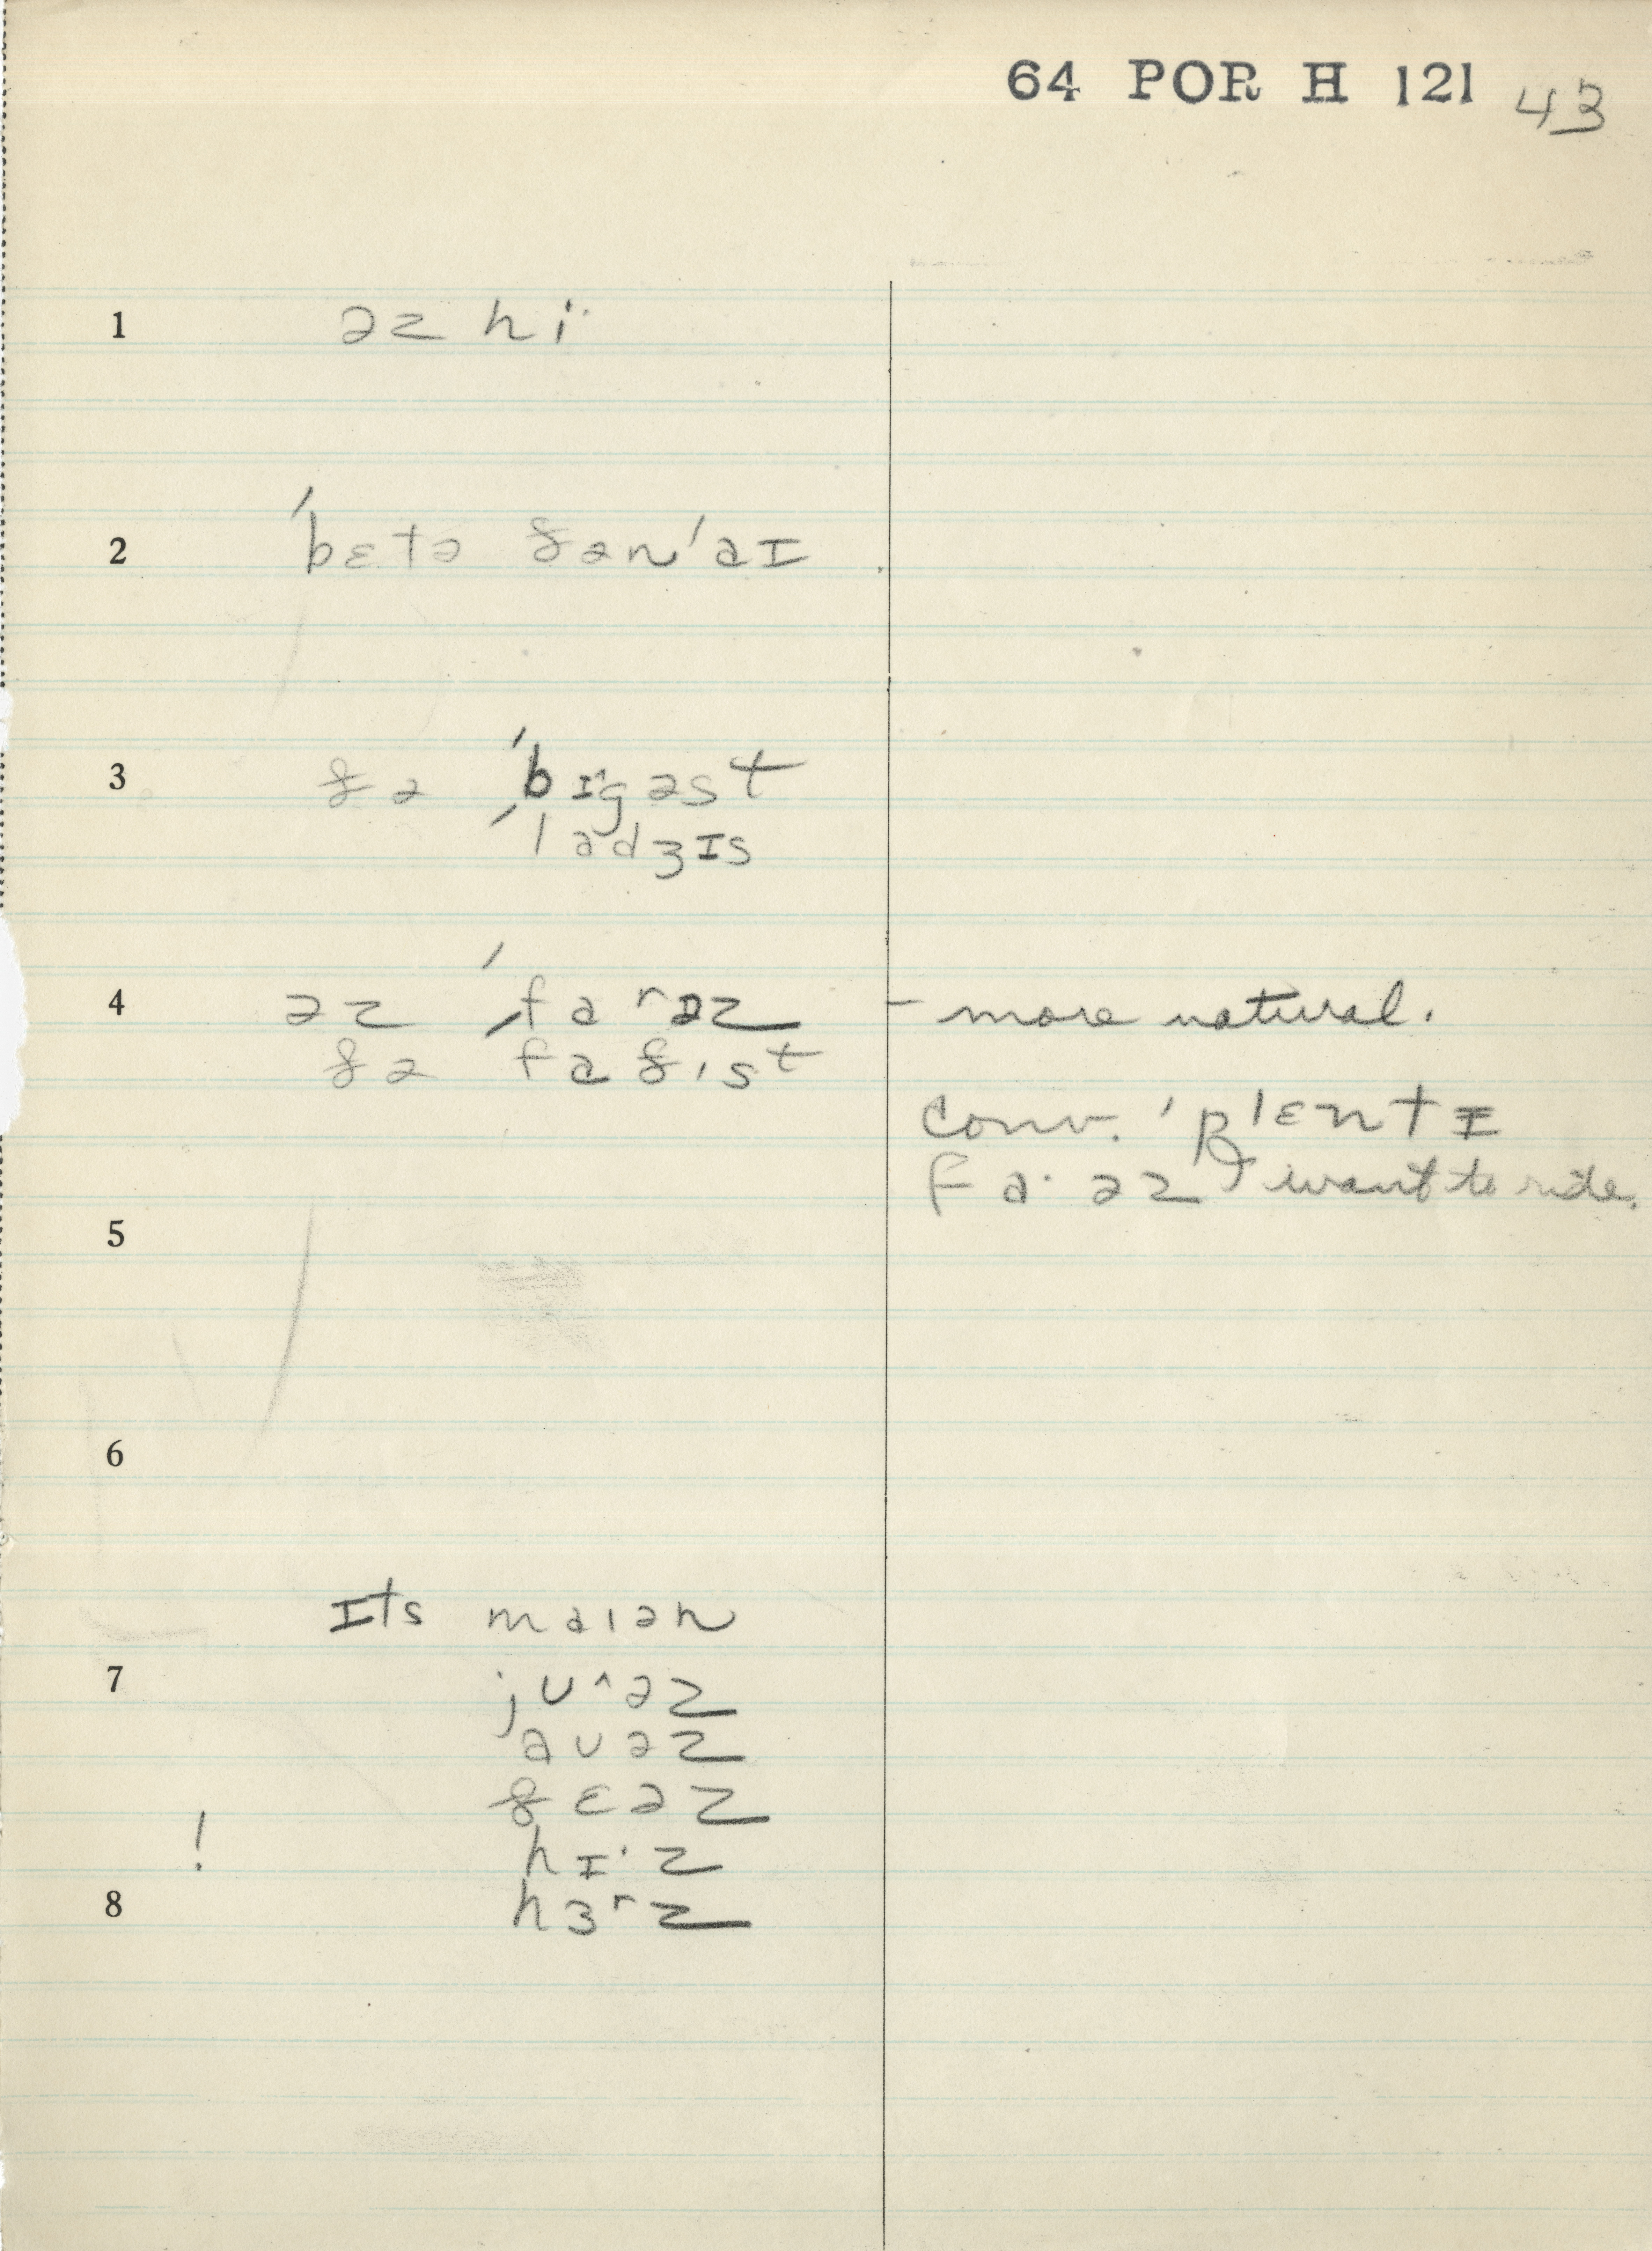 64 POR H 121 43
1 əz hi·
2 ˈbɛtə ðən ˈaɪ
3 ðə ˈbɪ^gəst
ˈladʒɪs
4 əz ˈfarəz - more natural.
ðə ˈfaðɪst
conv. ˈplɛntɪ
fa·əz I want to ride.
5
6
Its maɪən
7 jʊ^əz
aʊəz
ðɛəz
! hɪ·z
8 hɜrz